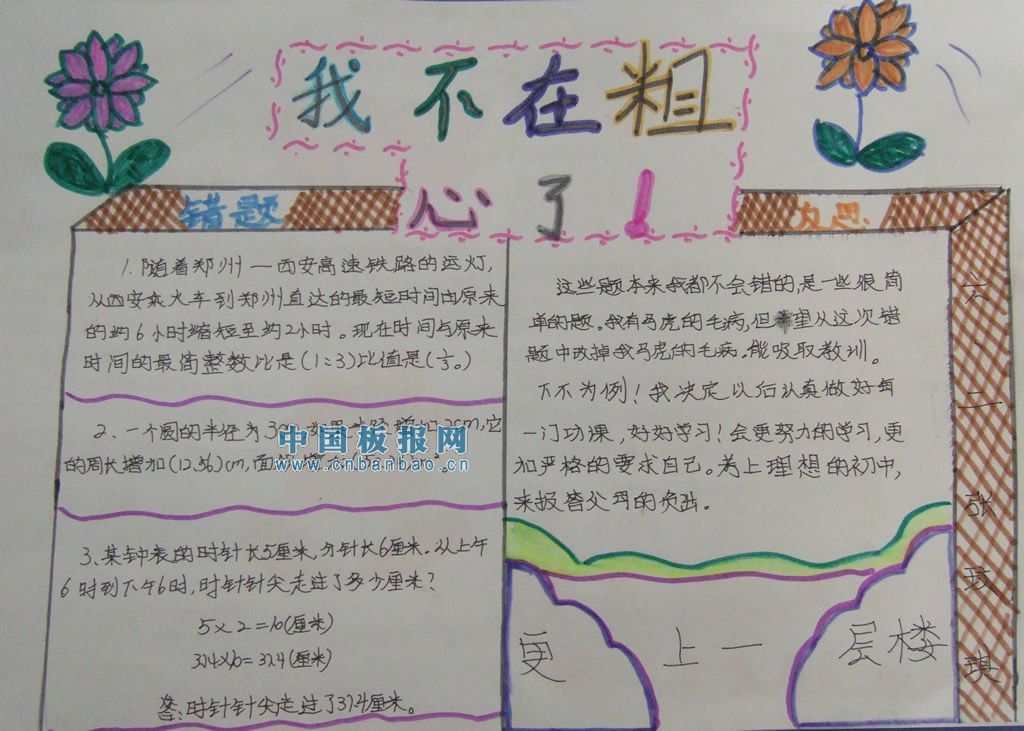 我不在粗
心了！
错题
1.随着郑州—西安高速铁路的运灯,
从西安乘火车到郑州直达的最短时间由原来
的约6小时缩短至约2小时。现在时间与原来
时间的最简整数比是(1:3)比值是(⅓。)
2、一个圆的半径为3cm,
增加2cm,它
的周长增加(12.56)cm,面
中国板报网
www.cnbanbao.cn
3、某钟表的时针长5厘米,分针长6厘米.从上午
6时到下午6时,时针针尖走过了多少厘米?
5×2=10(厘米)
3.14×10=31.4(厘米)
答:时针针尖走过了31.4厘米。
反思
这些题本来我都不会错的,是一些很简
单的题。我有马虎的毛病,但希望从这次错
题中改掉我马虎的毛病。能吸取教训。
下不为例!我决定以后认真做好每
一门功课,好好学习!会更努力的学习,更
加严格的要求自己。考上理想的初中,
来报答父母的负出。
更上一层楼
六、二
张玟琪